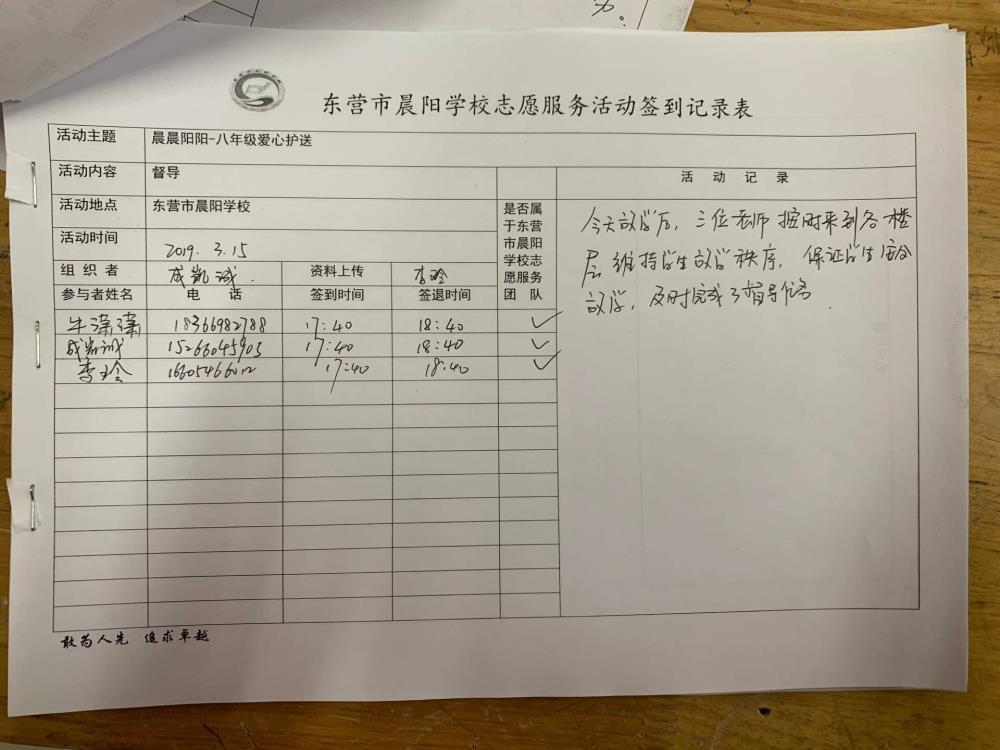 东营市晨阳学校志愿服务活动签到记录表
活动主题 晨晨阳阳-八年级爱心护送
活动内容 督导
活动地点 东营市晨阳学校
活动时间 2019. 3.15
组织者 成凯诚 资料上传 李玲
参与者姓名 电话 签到时间 签退时间
是否属
于东营
市晨阳
学校志
愿服务
团队
牛潇潇 18366982788 17:40 18:40 ✓
成凯诚 15266045903 17:40 18:40 ✓
李玲 16605466012 17:40 18:40 ✓
活动记录
今天放学后,三位老师按时来到各楼
层维持学生放学秩序,保证学生安全
放学,及时完成了督导任务
敢为人先 追求卓越